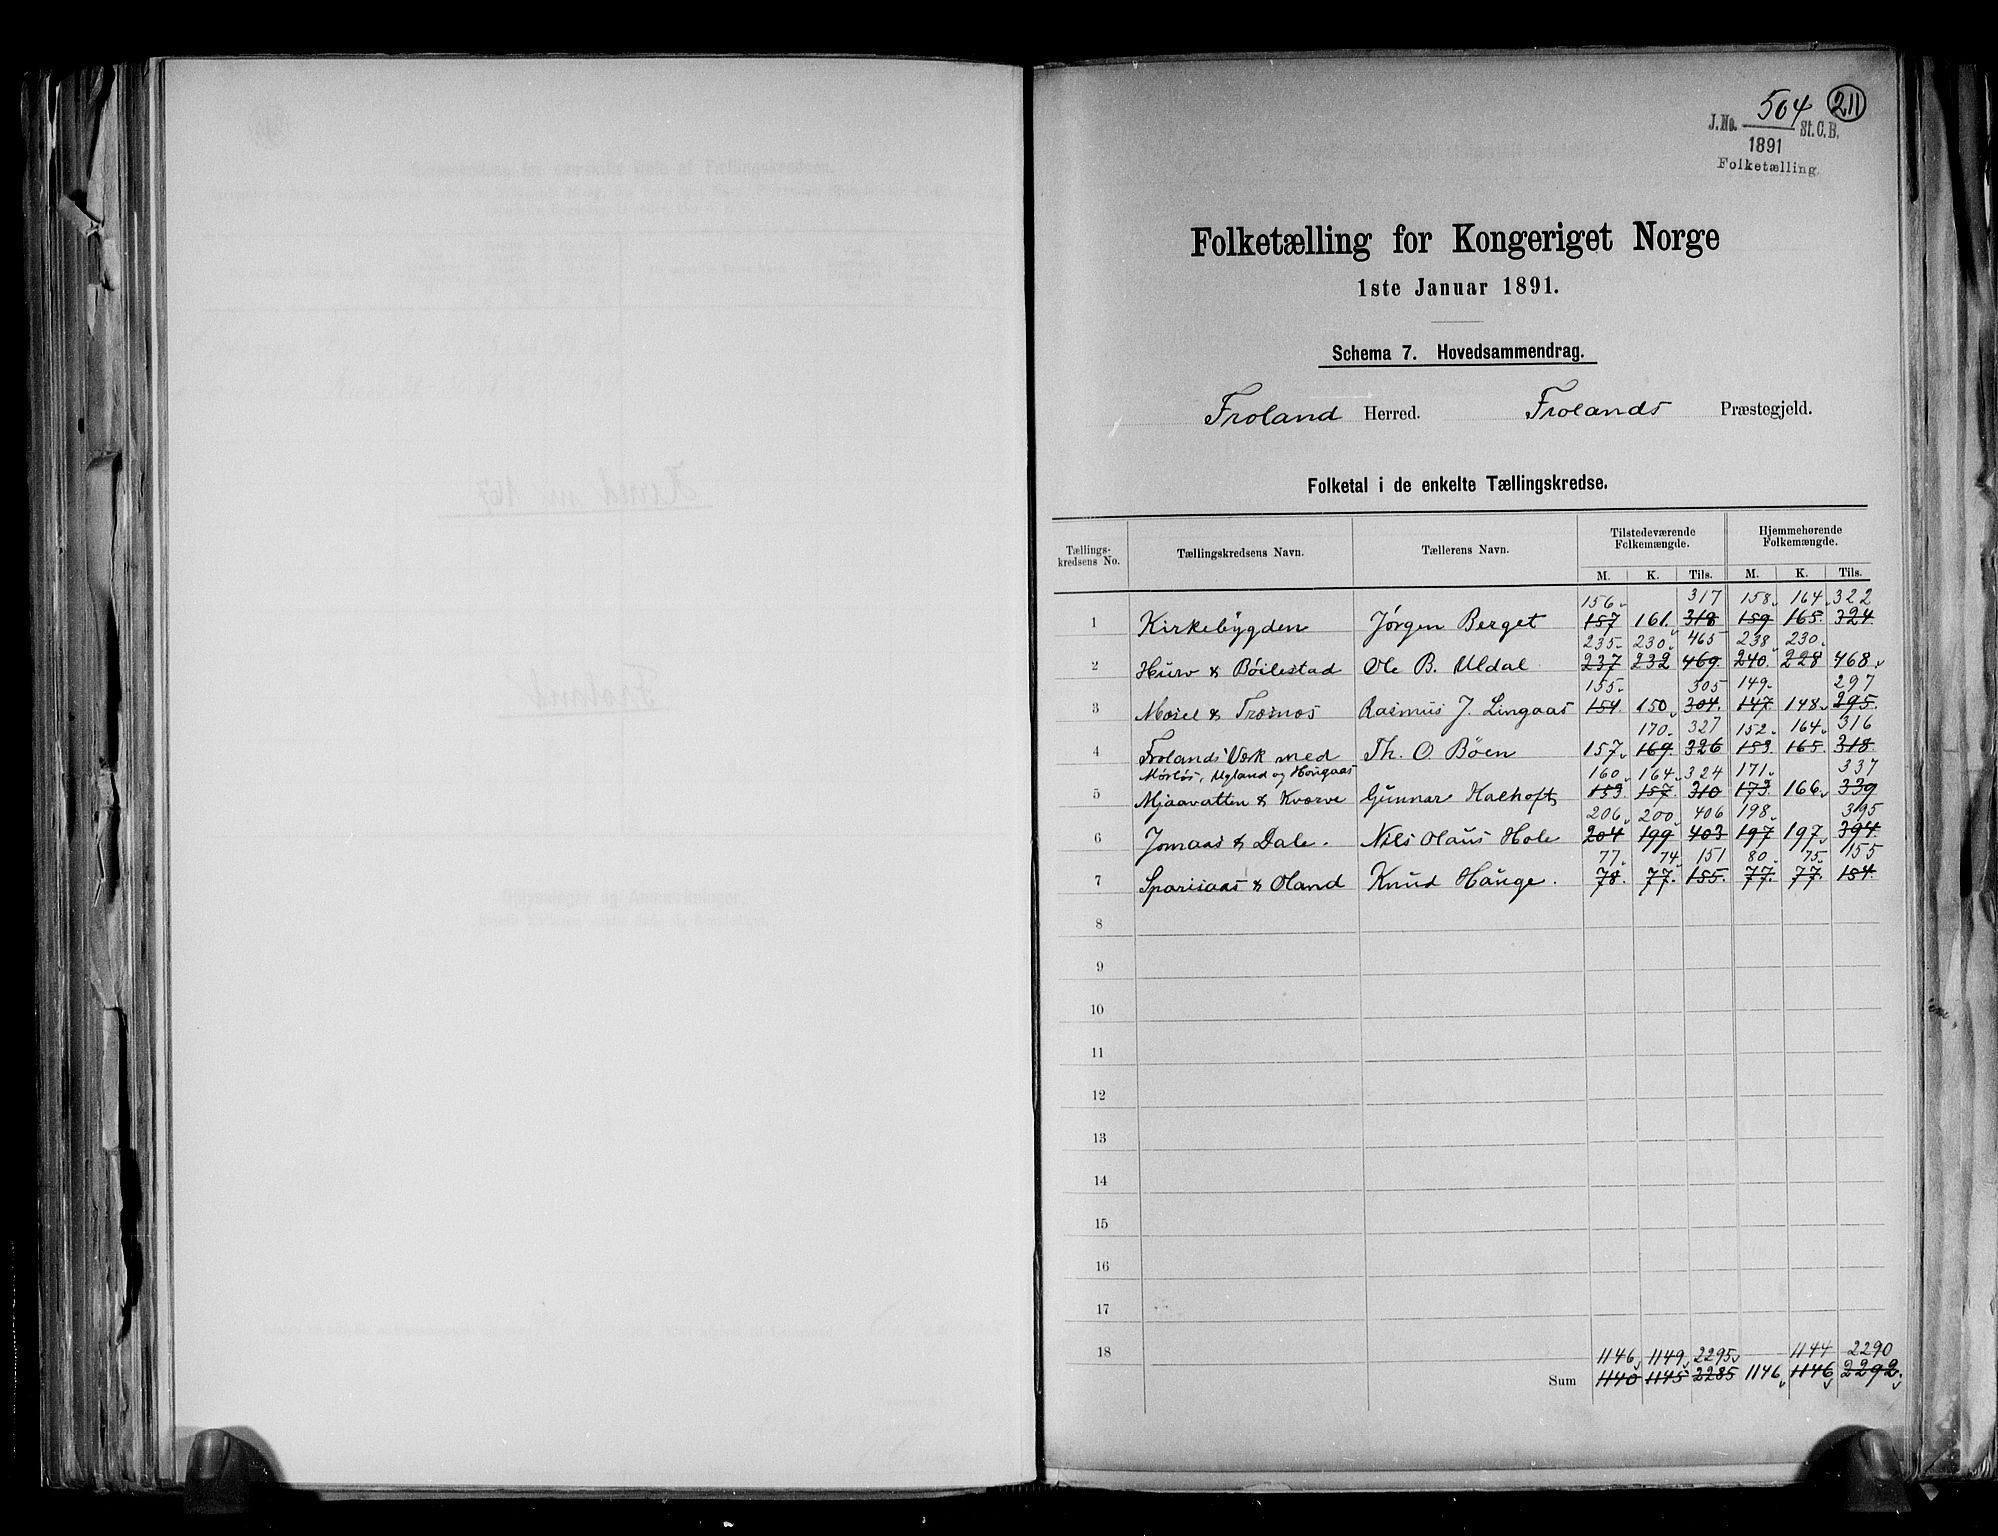 504 211
J.No. St.C.B.
1891
Folketælling.
Folketælling for Kongeriget Norge
1ste Januar 1891.
Schema 7. Hovedsammendrag.
Froland Herred. Frolands Præstegjeld.
Folketal i de enkelte Tællingskredse.
Tællings-kredsens No. Tællingskredsens Navn. Tællerens Navn. Tilstedeværende Folkemængde. Hjemmehørende Folkemængde.
M. K. Tils. M. K. Tils.
156 317 158 164 322
1 Kirkebygden Jørgen Berget 157 161 318 159 165 324
235 230 465 238 230
2 Hurv & Bøilestad Ole B. Uldal 237 232 469 240 228 468
155 305 149 297
3 Mæsel & Træsnæs Rasmus J. Lingaas 154 150 304 147 148 295
170 327 152 164 316
4 Frolands Værk med Th. O. Bøen 157 169 326 153 165 318
Mørløs, Ugland og Hougaas 160 164 324 171 337
5 Mjaavatten & Kværve Gunnar Halhoft 153 157 310 173 166 339
206 200 406 198 395
6 Jomaas & Dale. Nils Olaus Hole 204 199 403 197 197 394
77 74 151 80 75 155
7 Sparsaas & Oland Knud Hauge. 78 77 155 77 77 154
8
9
10
11
12
13
14
15
16
17
18 1146 1149 2295 1144 2290
Sum 1140 1145 2285 1146 1146 2292